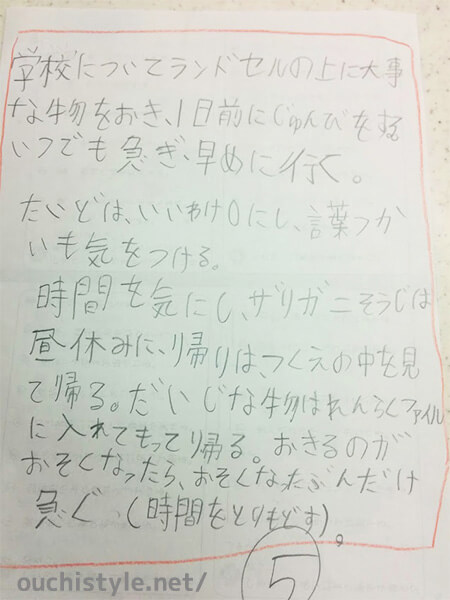 学校についてランドセルの上に大事
な物をおき、1日前にじゅんびをする
いつでも急ぎ、早めに行く。
たいどは、いいわけ0にし、言葉つか
いも気をつける。
時間を気にし、ザリガニそうじは
昼休みに、帰りは、つくえの中を見
て帰る。だいじな物はれんらくファイル
に入れてもって帰る。おきるのが
おそくなったら、おそくなったぶんだけ
急ぐ。(時間をとりもどす)。
5
ouchistyle.net/